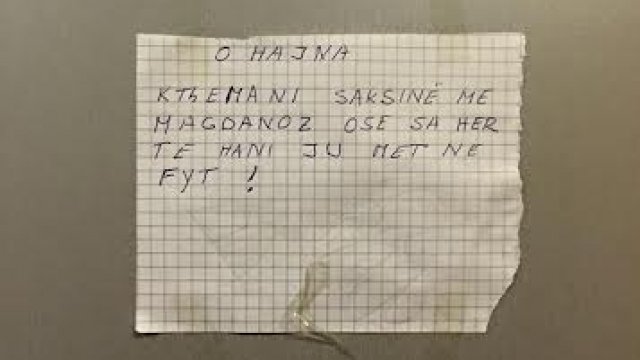 O HAJNA
KTHEMANI SAKSINË ME
MAGDANOZ OSE SA HER
TE HANI JU MET NE
FYT !